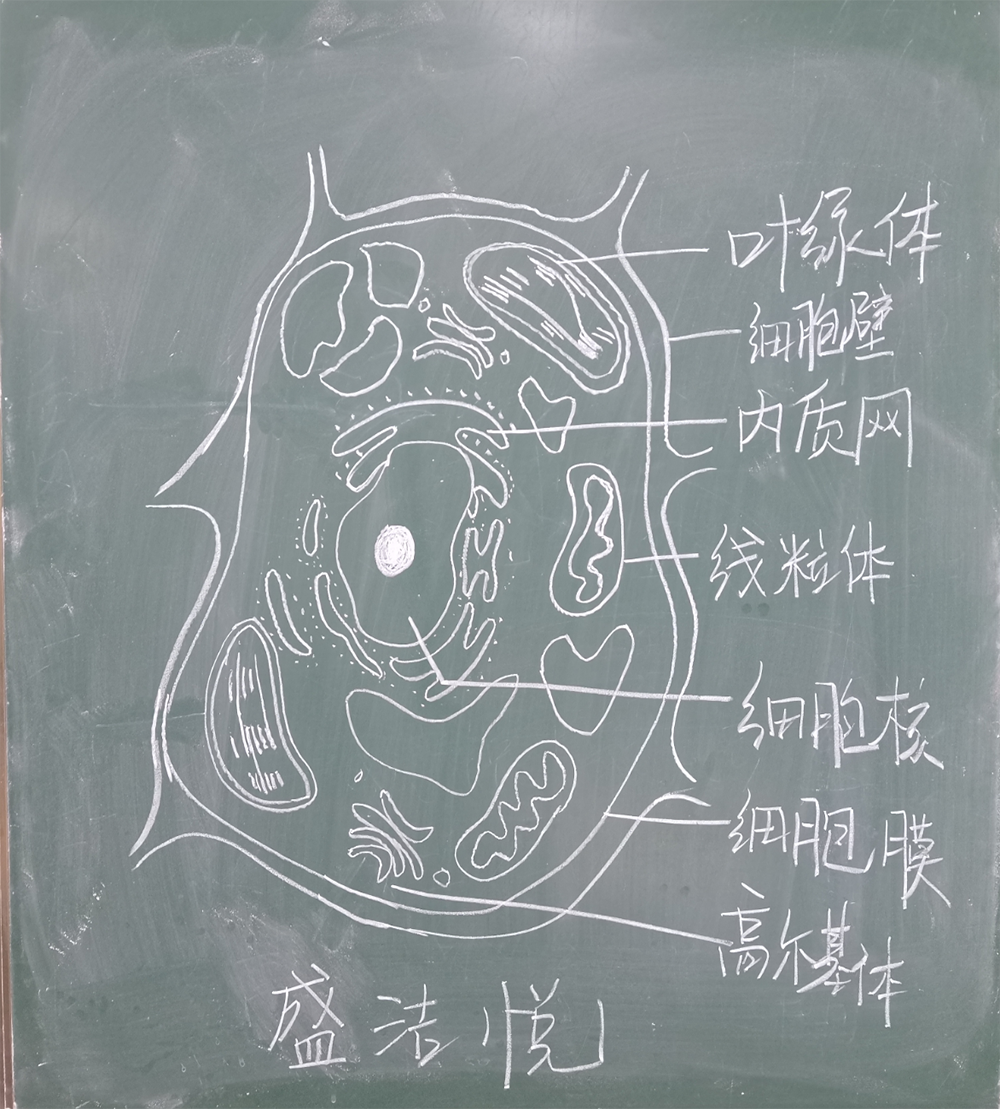 叶绿体
细胞壁
内质网
线粒体
细胞核
细胞膜
高尔基体
盛洁悦